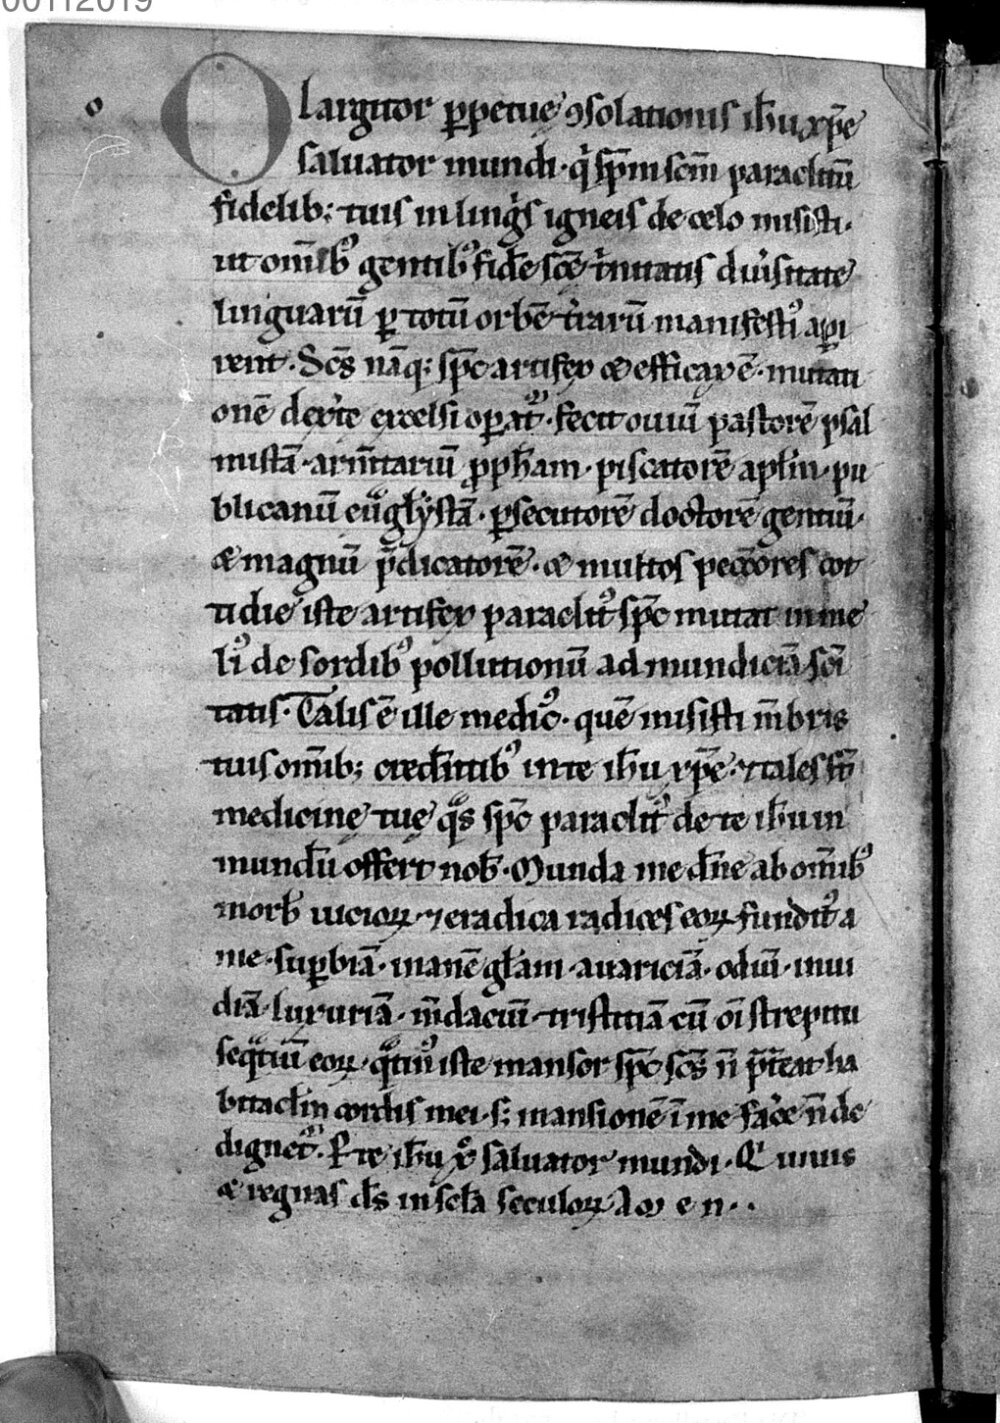 00112019
o
O largitor ꝑpetuę ꝯsolationis ih̅u xp̅e
saluator mundi · qͥ sp̅m scm̅ paraclitū
fidelib; tuis in lingͥs igneis de celo misisti ·
ut om̅ibꝰ gentibꝰ fidē scē tͥnitatis diuͥsitate
linguarū ꝑ totū orbē tͥrarū manifestiꝰ aꝑi
rent · Scs̅ nāq; sp̅c artifex & efficax ē · mutati
onē dext̾e excelsi oꝑat᷑ · fecit ouiū pastorē psal
mistā · arm̅tariū ꝓph̅am · piscatorē apl̅m · pu
blicanū eūgl̅ystā · ꝑsecutorē doctorē gentiū ·
& magnū p̅dicatorē · & multos pecc̅ores cot
tidie iste artifex paraclitꝰ sp̅c mutat in me
liꝰ de sordibꝰ pollutionū ad mundiciā sc̅i
tatis · Talis ē ille medicꝰ · quē misisti m̅bris
tuis om̅ib; cred̅ntibꝰ in te ih̅u xp̅e · ⁊ tales st̅
medicinę tuę qͣs sp̅c paraclitꝰ de te ih̅u in
mundū offert nob̅ · Munda me dn̅e ab om̅ibꝰ
morb̅ uicioꝝ · ⁊ eradica radices eoꝝ funditꝰ a
me · suꝑbiā · inanē gl̅am · auariciā · odiū · inui
diā · luxuriā · m̅daciū · tristitiā cū oi̅ strepitu
seqͣtiū eoꝝ · qͣtinꝰ iste mansor sp̅c scs̅ n̅ p̅t̅eat ha
bitacl̅m cordis mei · s; mansionē ī me fac̾e n̅ de
dignet᷑ · P te ih̅u xp̅e saluator mundi · Qͥ uiuis
& regnas ds̅ in scl̅a seculoꝝ Am e n · ·